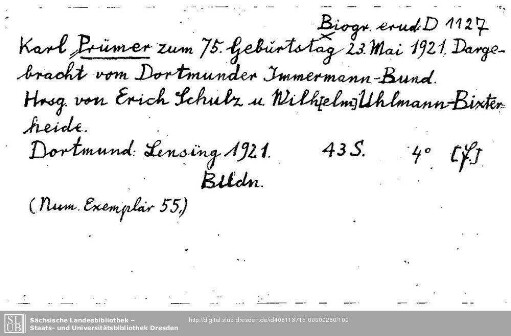 Biogr. erud. D 1127
Karl Prümer zum 75. Geburtstag 23. Mai 1921. Darge-
bracht vom Dortmunder Immermann-Bund.
Hrsg. von Erich Schulz u. Wilh[elm] Uhlmann-Bixter-
heide.
Dortmund: Lensing 1921. 43 S. 4° [f.]
Bildn.
(Num. Exemplar 55.)
Sächsische Landesbibliothek –
Staats- und Universitätsbibliothek Dresden